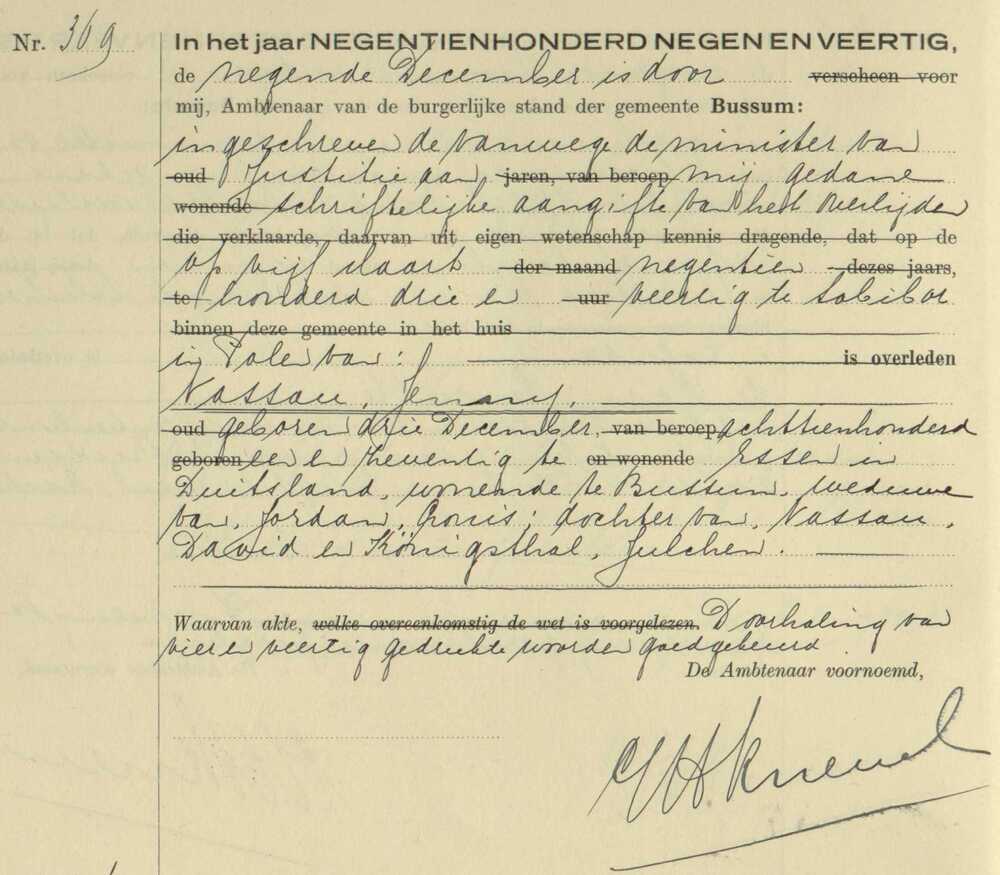 Nr. 369
In het jaar NEGENTIENHONDERD NEGEN EN VEERTIG,
de negende December is door verscheen voor
mij, Ambtenaar van de burgerlijke stand der gemeente Bussum:
ingeschreven de vanwege de minister van
oud Justitie aan jaren, van beroep mij gedane
wonende schriftelijke aangifte van het overlijden
die verklaarde, daarvan uit eigen wetenschap kennis dragende, dat op de
op vijf Maart der maand negentien dezes jaars,
te honderd drie en uur veertig te Sobibor
binnen deze gemeente in het huis
in Polen van: is overleden
Nassau, Jenny,
oud geboren drie December, van beroep achttienhonderd
geboren een en zeventig te en wonende Essen in
Duitsland, wonende te Bussum, weduwe
van Jordan, Gonis; dochter van Nassau,
David en Königsthal, Julchen.
Waarvan akte, welke overeenkomstig de wet is voorgelezen. Doorhaling van
vier en veertig gedrukte woorden goedgekeurd.
De Ambtenaar voornoemd,